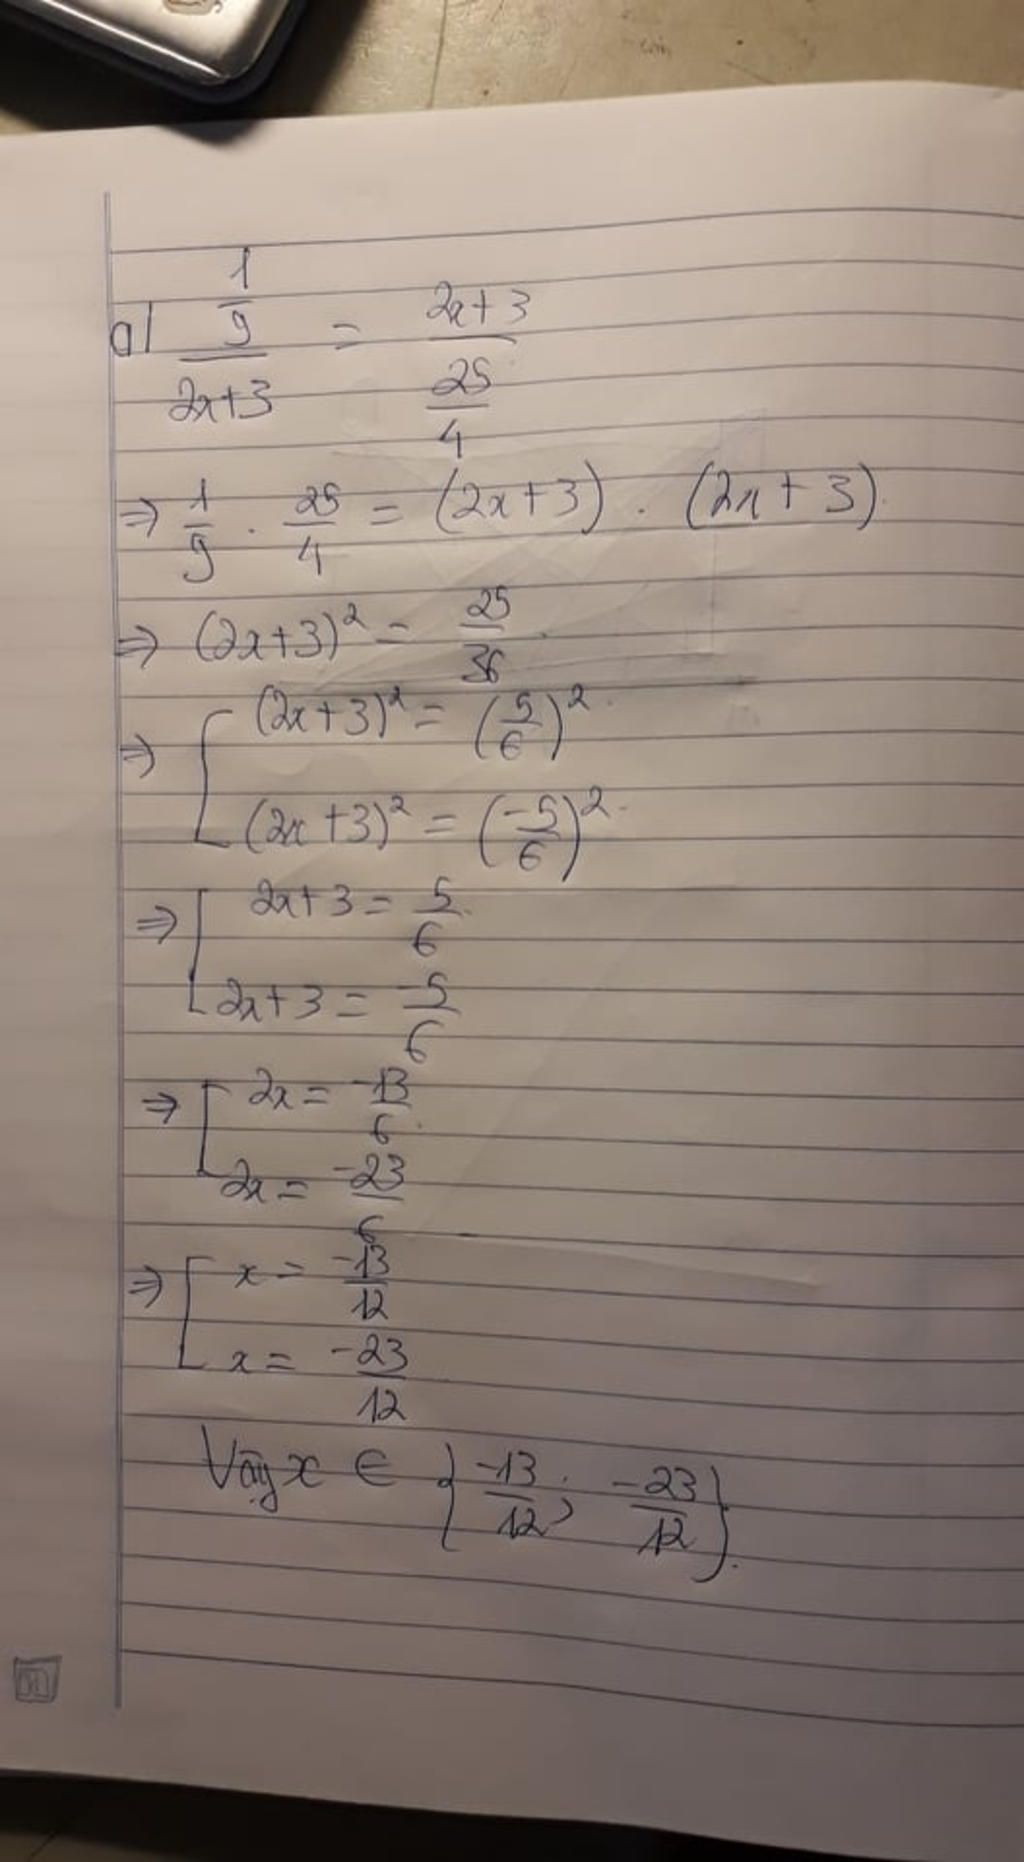 a) \frac{\frac{1}{9}}{2x+3} = \frac{2x+3}{\frac{25}{4}}
⇒ \frac{1}{9} . \frac{25}{4} = (2x+3) . (2x+3).
⇒ (2x+3)² = \frac{25}{36}.
⇒ [ (2x+3)² = (\frac{5}{6})².
(2x+3)² = (\frac{-5}{6})².
⇒ [ 2x+3 = \frac{5}{6}.
2x+3 = \frac{-5}{6}
⇒ [ 2x = \frac{-13}{6}.
2x = \frac{-23}{6}
⇒ [ x = \frac{-13}{12}
x = \frac{-23}{12}
Vậy x ∈ {\frac{-13}{12}; \frac{-23}{12}}.